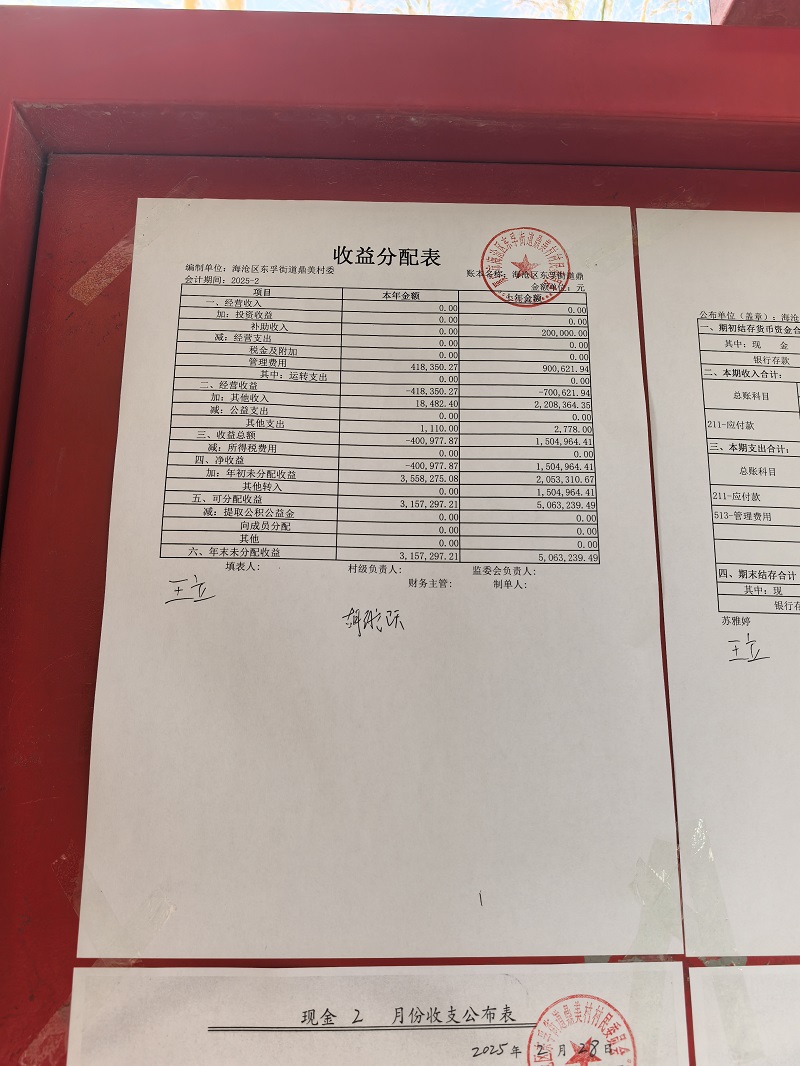 收益分配表
编制单位：海沧区东孚街道鼎美村委
账本名称：海沧区东孚街道鼎
会计期间：2025-2
金额单位：元
项目 本年金额 上年金额
一、经营收入 0.00 0.00
加：投资收益 0.00 0.00
补助收入 0.00 200,000.00
减：经营支出 0.00 0.00
税金及附加 0.00 0.00
管理费用 418,350.27 900,621.94
其中：运转支出 0.00 0.00
二、经营收益 -418,350.27 -700,621.94
加：其他收入 18,482.40 2,208,364.35
减：公益支出 0.00 0.00
其他支出 1,110.00 2,778.00
三、收益总额 -400,977.87 1,504,964.41
减：所得税费用 0.00 0.00
四、净收益 -400,977.87 1,504,964.41
加：年初未分配收益 3,558,275.08 2,053,310.67
其他转入 0.00 1,504,964.41
五、可分配收益 3,157,297.21 5,063,239.49
减：提取公积公益金 0.00 0.00
向成员分配 0.00 0.00
其他 0.00 0.00
六、年末未分配收益 3,157,297.21 5,063,239.49
填表人： 村级负责人： 监委会负责人：
财务主管： 制单人：
王立
公布单位（盖章）：海沧
一、期初结存货币资金合
其中：现 金
银行存款
二、本期收入合计：
总账科目
211-应付款
三、本期支出合计：
总账科目
211-应付款
513-管理费用
四、期末结存合计
其中：现
银行存
苏雅婷
王立
现金 2 月份收支公布表
2025 年 2 月 28 日